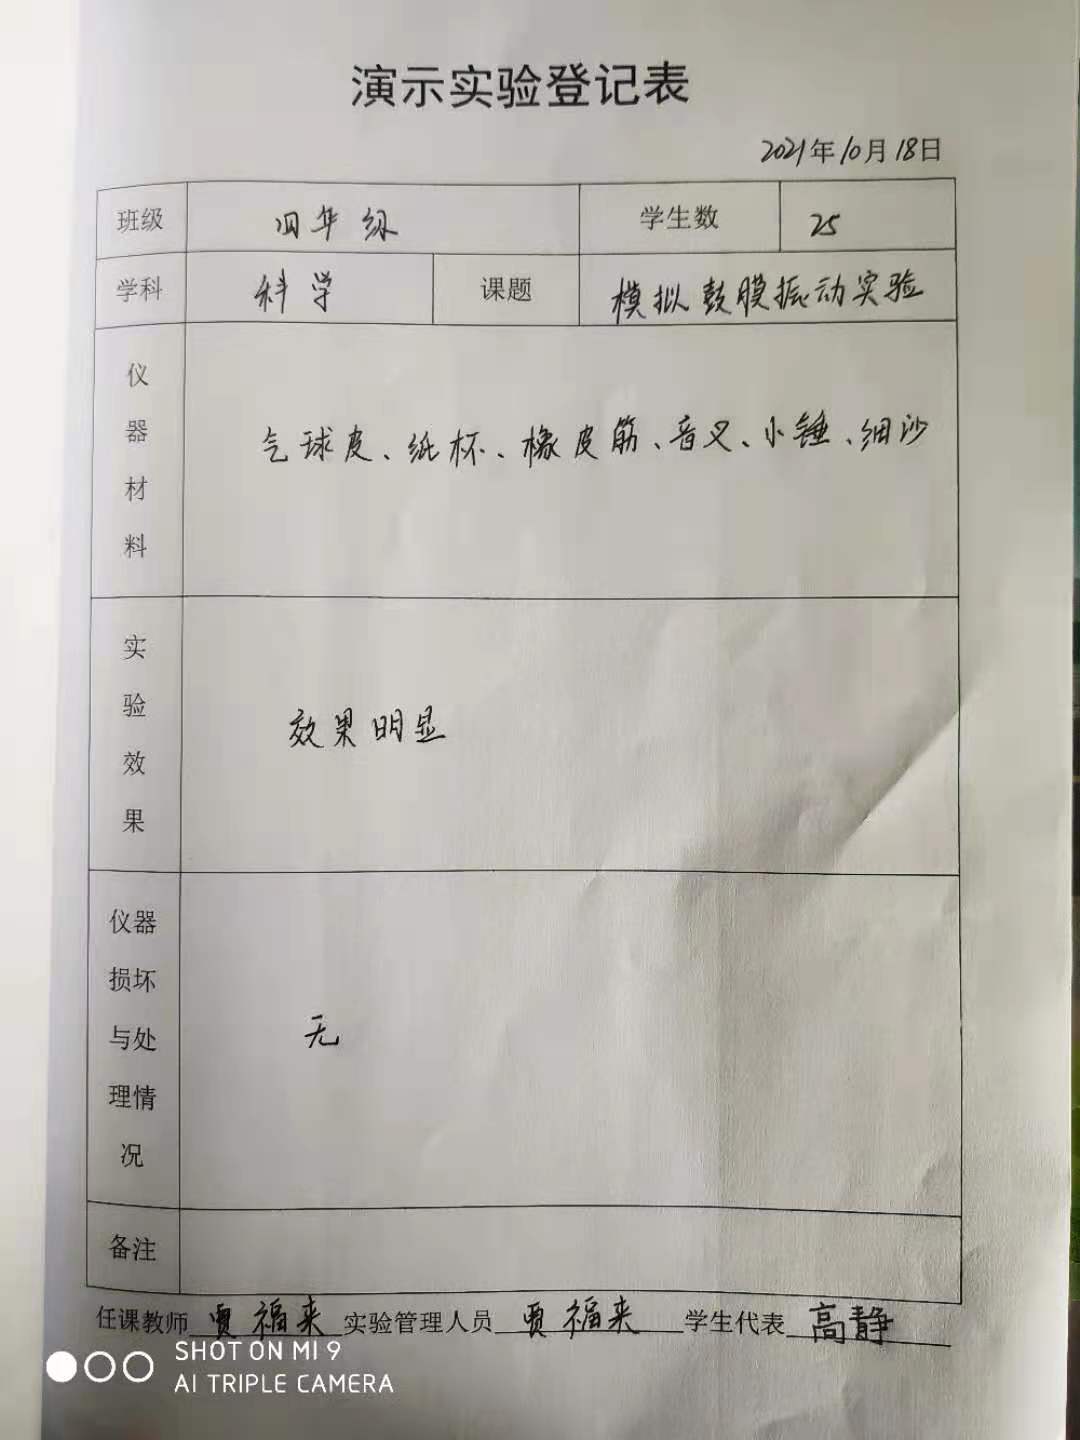 演示实验登记表
2021年10月18日
班级 四年级 学生数 25
学科 科学 课题 模拟鼓膜振动实验
仪器材料 气球皮、纸杯、橡皮筋、音叉、小锤、细沙
实验效果 效果明显
仪器损坏与处理情况 无
备注
任课教师 贾福来 实验管理人员 贾福来 学生代表 高静
SHOT ON MI 9
AI TRIPLE CAMERA